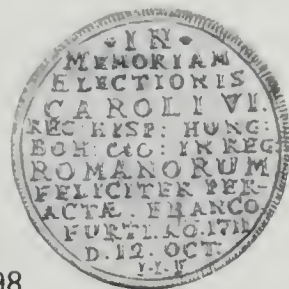 ·IN·
MEMORIAM
ELECTIONIS
CAROLI VI.
REG: HISP: HUNG:
BOH: &C: IN REG:
ROMANORUM
FELICITER PER-
ACTÆ. FRANCO
FURTI. AO. 1711
D. 12. OCT.
98